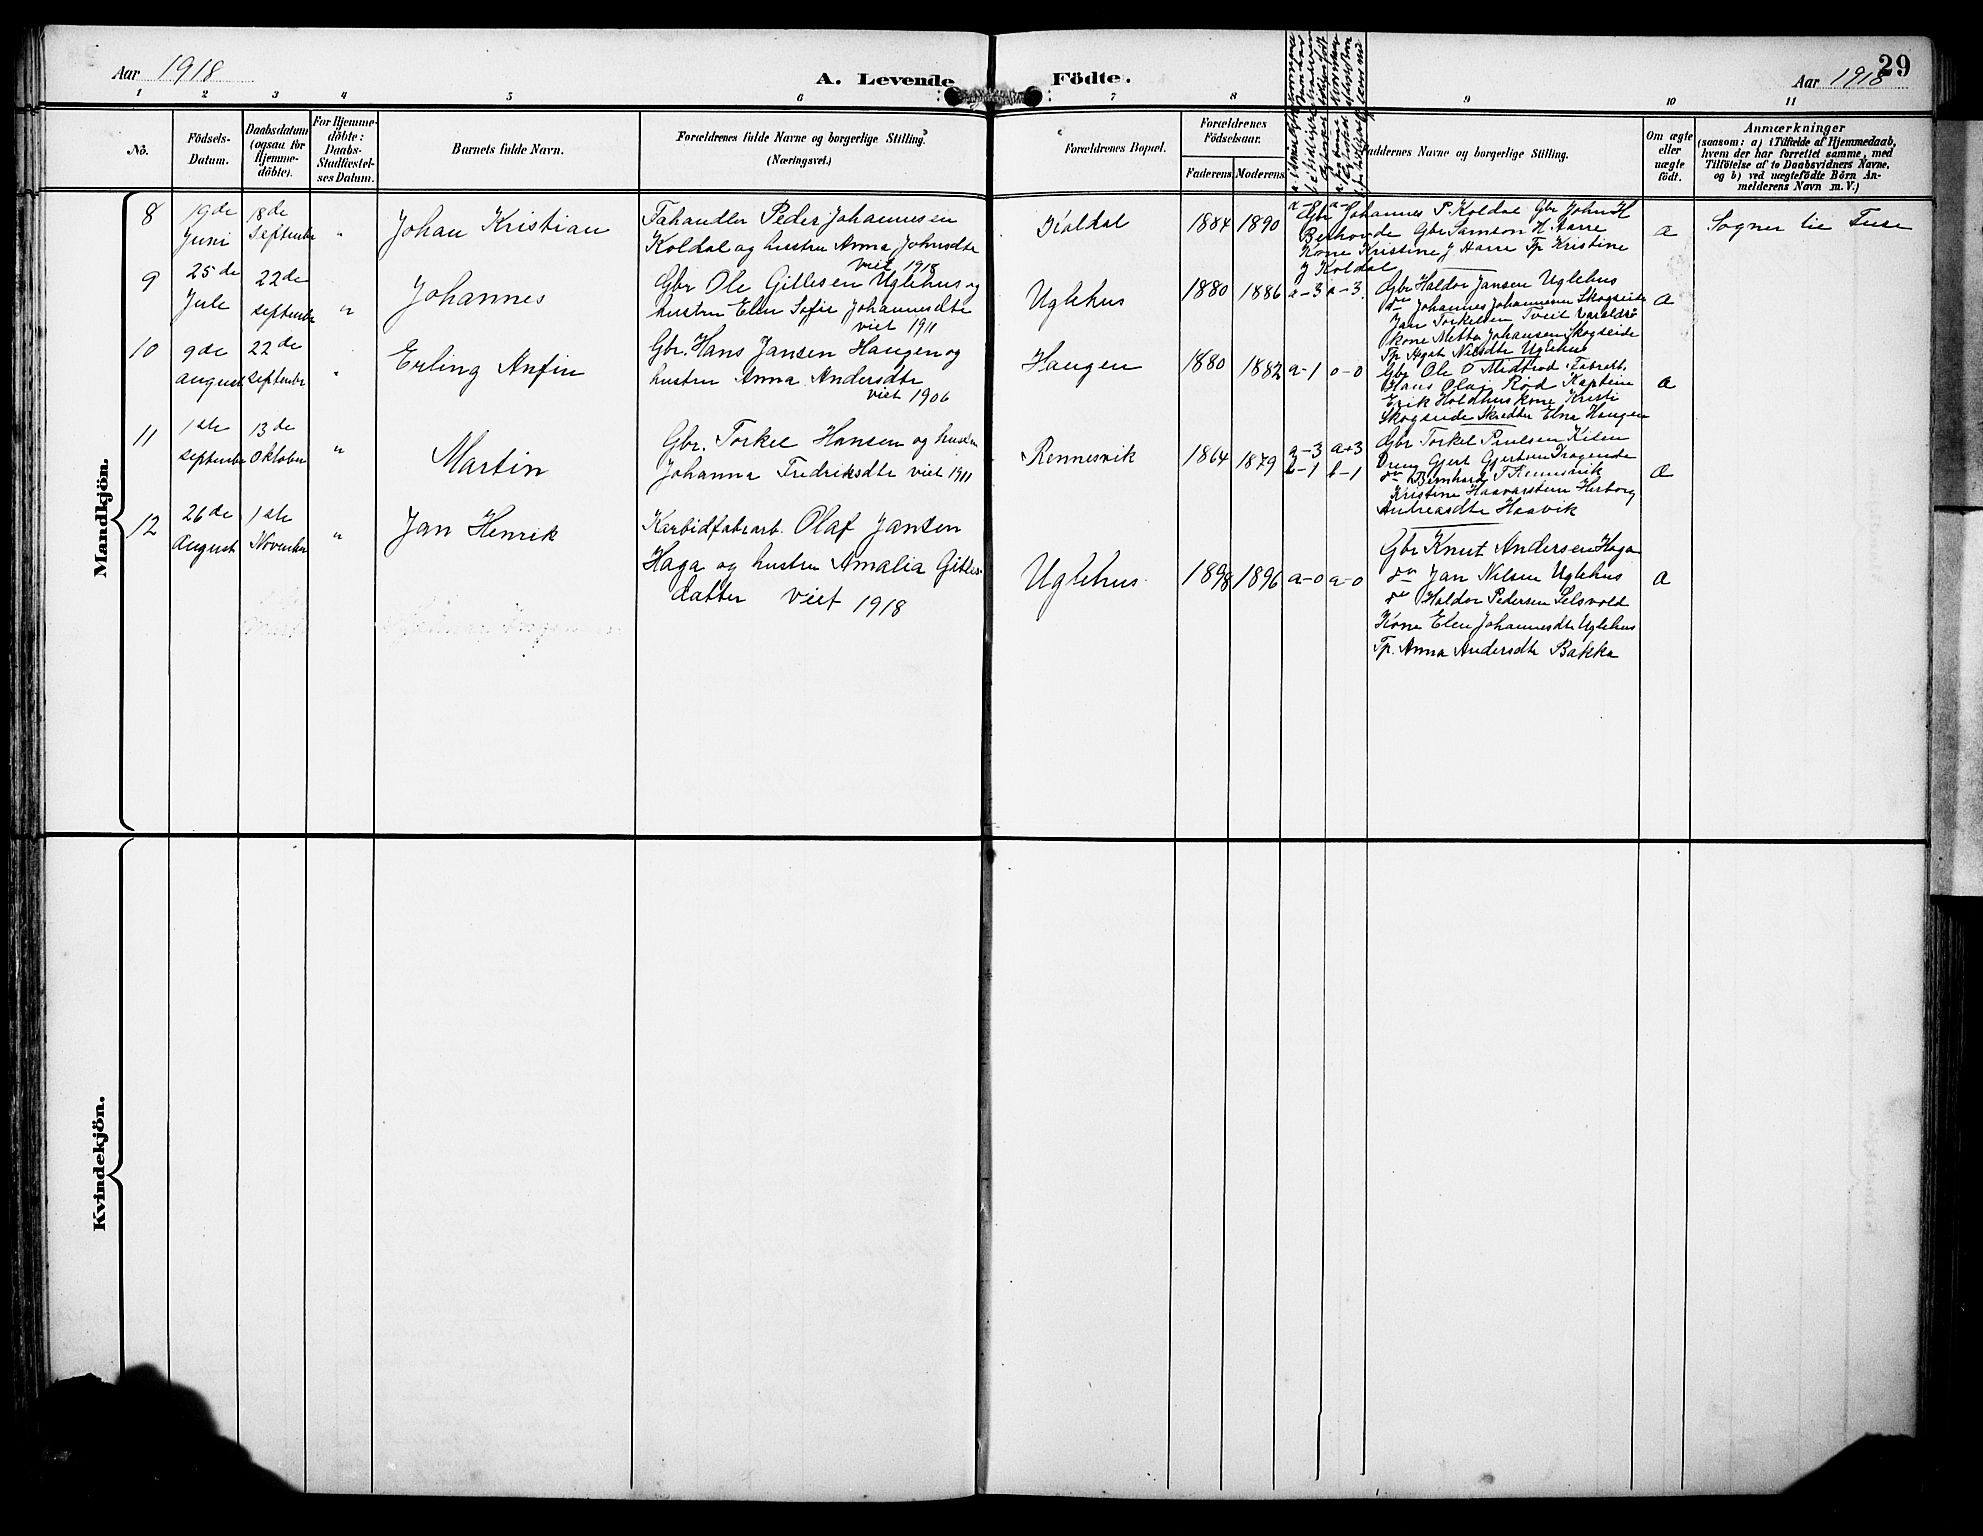 Aar 1918
A. Levende Födte.
Aar 1918
29
1 2 3 4 5 6 7 8 9 10 11
No.
Födsels-
Datum.
Daabsdatum
(ogsaa for
Hjemme-
döbte).
For Hjemme-
döbte:
Daabs-
Stadfæstel-
ses Datum.
Barnets fulde Navn.
Forældrenes fulde Navne og borgerlige Stilling.
(Næringsvei.)
Forældrenes Bopæl.
Forældrenes
Födselsaar.
Faderens Moderens
Faddernes Navne og borgerlige Stilling.
Om ægte
eller
uægte
födt.
Anmærkninger
(saasom: a) i Tilfælde af Hjemmedaab,
hvem der har forrettet samme, med
Tilföielse af to Daabsvidners Navne,
og b) ved uægtefödte Börn An-
melderens Navn m. V.)
Mandkjön.
8
19de
Juni
18de
September
"
Johan Kristian
Peder Johannesen
Koldal og hustru Anna Johnsdtr
viet 1918
Koldal
1884 1890
Gbr Johannes P. Koldal Gbr John H
Gbr Samson H. Aarre
Kone Kristine J Aarre Tp Kristine
J Koldal
a
Sogner til Fuse
9
25de
Jule
22de
september
"
Johannes
Gbr Ole Gittlesen Uglehus og
hustru Elen Sofie Johannesdtr
viet 1911
Uglehus
1880 1886 a-3 a-3
Gbr Haldor Jansen Uglehus
do Johannes Johannesen Skogseide
Jan Torkelsen Tveit Varaldsö
kone Mette Johansen Skogseide
Tp Agate Nilsdtr Uglehus
a
10
9de
august
22de
september
"
Erling Anfin
Gbr. Hans Jansen Haugen og
hustru Anna Andersdtr
viet 1906
Haugen
1880 1882 a-1 a-0
Gbr Ole O Midtrød
Hans Olai Rød Kaptein
Erik Holdhus kone Kristi
Skogseide Elna Haugen
a
11
1ste
september
13de
Oktober
"
Martin
Gbr. Torkel Hansen og hustru
Johanna Fredriksdtr viet 1911
Rennesvik
1864 1879 a-3 a+3
b-1 b-1
Gbr Torkel Paulsen Kilen
Dreng Gjert Gjertsen
do Bernhard T Rennesvik
Kristine Haavarstein Herborg
Andreasdtr Haavik
a
12
26de
August
1ste
November
"
Jan Henrik
Karbidfabrarb. Olaf Jansen
Haga og hustru Amalia Gitles-
datter viet 1918
Uglehus
1898 1896 a-0 a-0
Gbr Knut Andersen Haga
do Jan Nilsen Uglehus
do Haldor Pedersen Selsvold
Kone Elen Johannesdtr Uglehus
Tp. Anna Andersdtr Bakka
a
Kvindekjön.